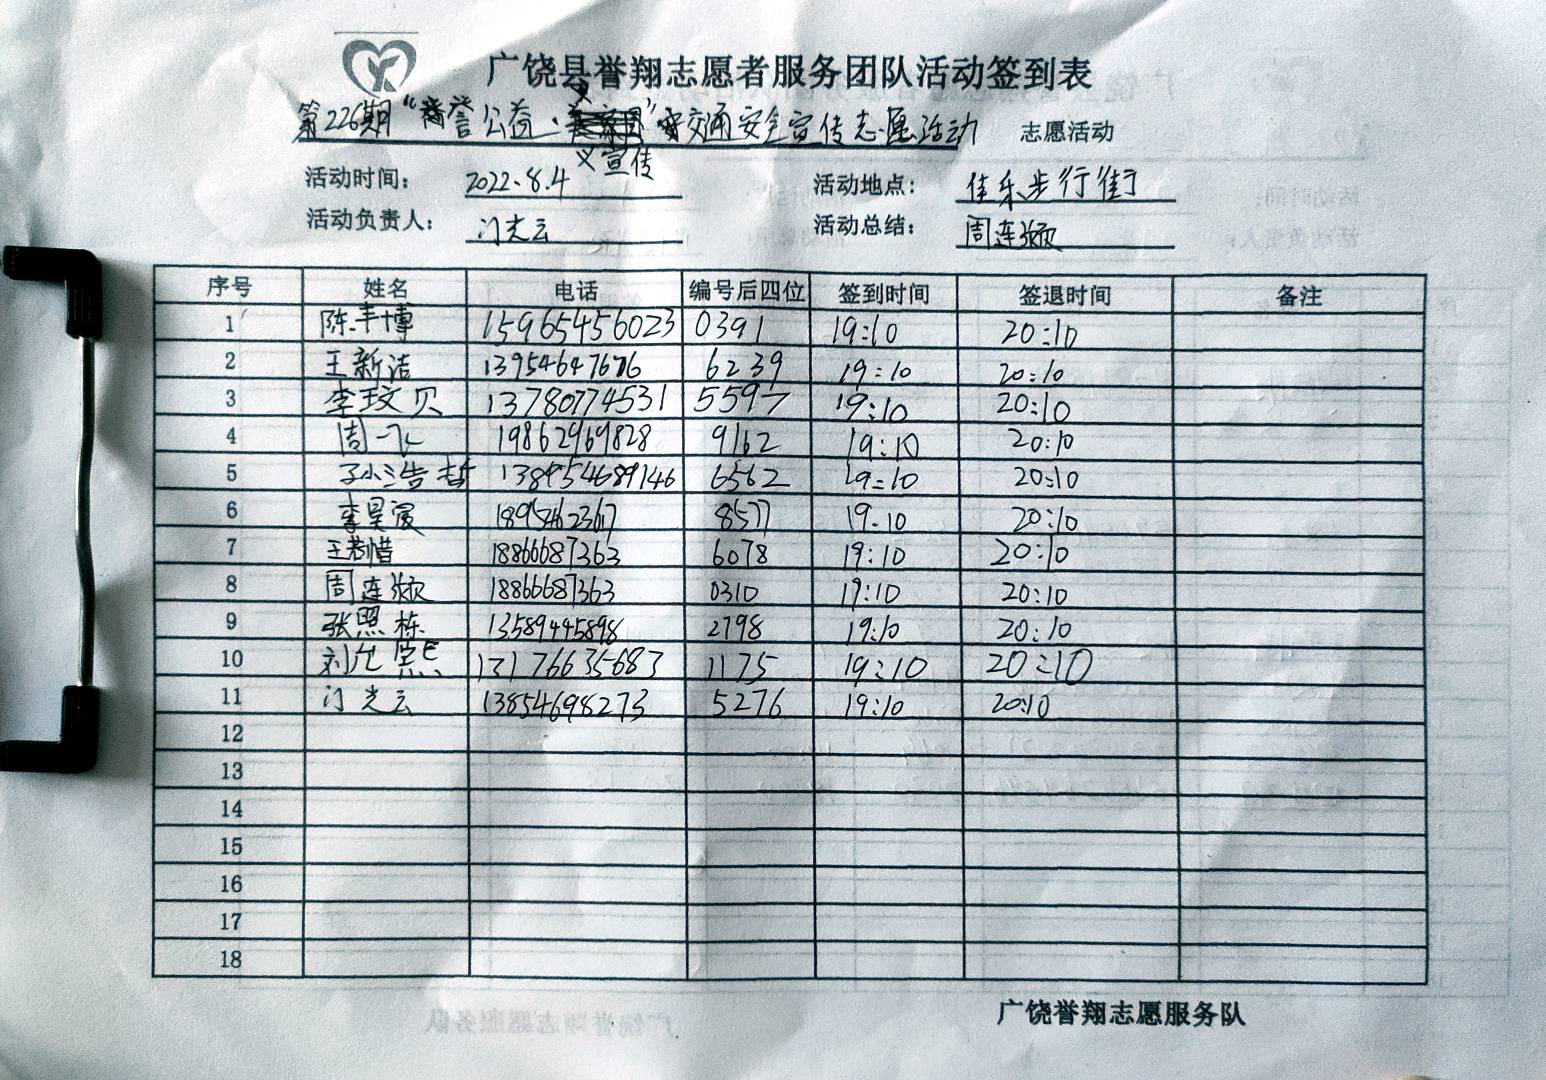 广饶县誉翔志愿者服务团队活动签到表
第226期“誉公益·义宣传”交通安全宣传志愿活动 志愿活动
活动时间： 2022.8.4 活动地点： 佳乐步行街
活动负责人： 门光云 活动总结： 周连颍
序号 姓名 电话 编号后四位 签到时间 签退时间 备注
1 陈丰博 15965456023 0391 19:10 20:10
2 王新洁 13954647676 6239 19:10 20:10
3 李玟贝 13780774531 5597 19:10 20:10
4 周一飞 19862969828 9162 19:10 20:10
5 孙浩哲 138954689146 6562 19:10 20:10
6 李昊 18954623617 8577 19.10 20:10
7 王惜 18866687363 6078 19:10 20:10
8 周连颍 18866687363 0310 19:10 20:10
9 张照栋 13589445898 2798 19:10 20:10
10 刘允 13176635683 1175 19:10 20:10
11 门光云 13854698273 5276 19:10 20:10
12
13
14
15
16
17
18
广饶誉翔志愿服务队